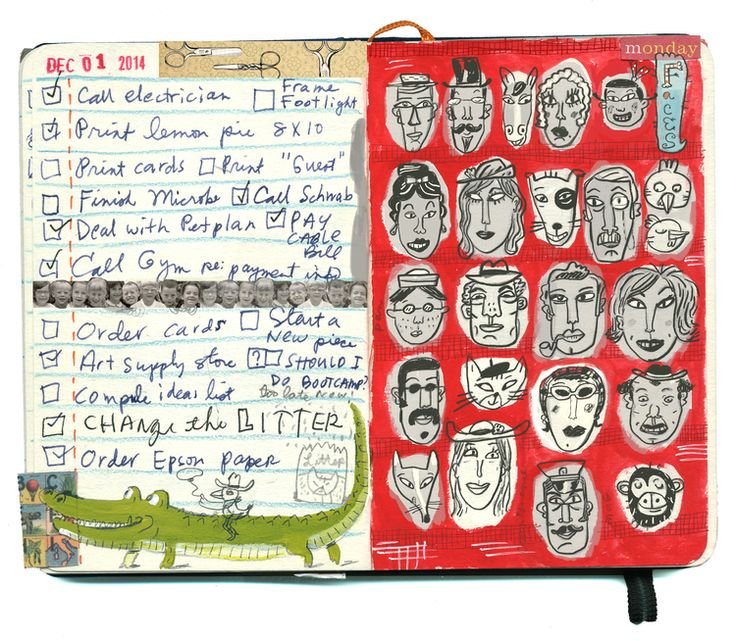 DEC 01 2014
Call electrician
Frame
Footlight
Print lemon pie 8x10
Print cards Print "Guest"
Finish Microbe Call Schwab
Deal with Petplan PAY
CABLE
Bill
Call Gym re: payment info
Order cards Start a
New piece
Art supply store ? SHOULD I
DO BOOTCAMP?
Too late now!
Compile ideas list
CHANGE the LITTER
Order Epson paper
Litter
monday
Faces